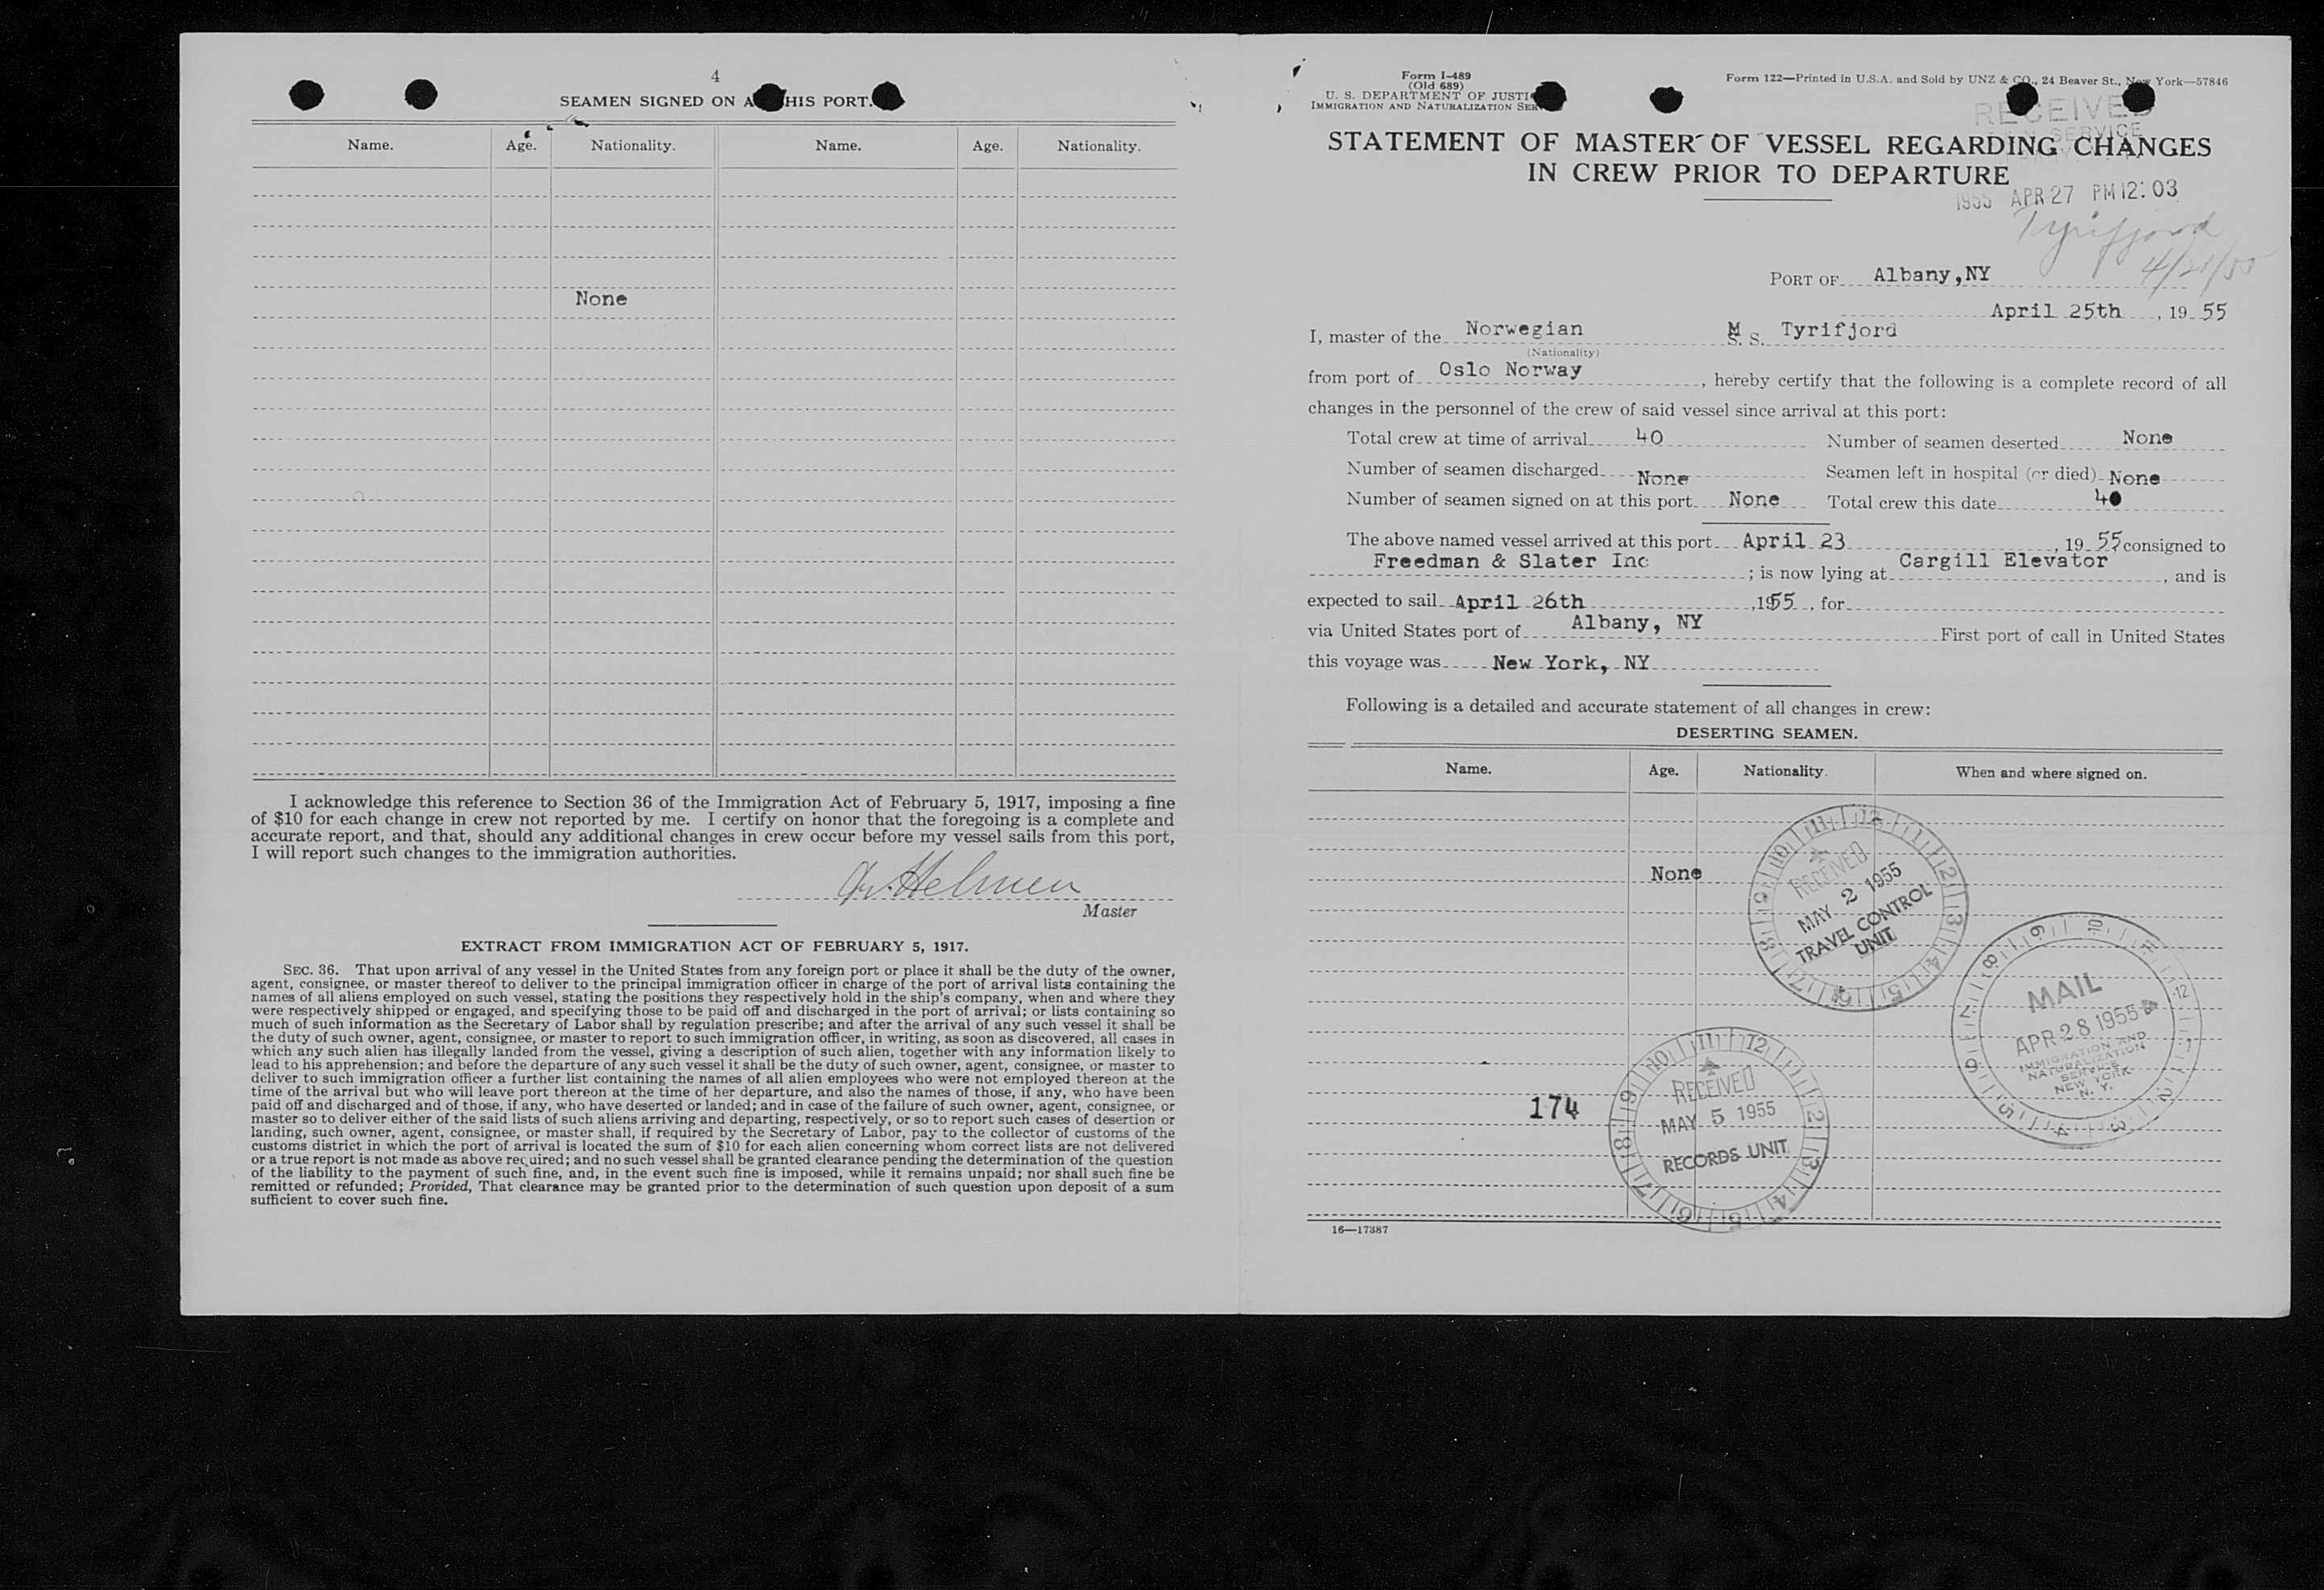 4
SEAMEN SIGNED ON A HIS PORT.
Name. Age. Nationality. Name. Age. Nationality.
None
I acknowledge this reference to Section 36 of the Immigration Act of February 5, 1917, imposing a fine
of $10 for each change in crew not reported by me. I certify on honor that the foregoing is a complete and
accurate report, and that, should any additional changes in crew occur before my vessel sails from this port,
I will report such changes to the immigration authorities.
Helmen
Master
EXTRACT FROM IMMIGRATION ACT OF FEBRUARY 5, 1917.
SEC. 36. That upon arrival of any vessel in the United States from any foreign port or place it shall be the duty of the owner,
agent, consignee, or master thereof to deliver to the principal immigration officer in charge of the port of arrival lists containing the
names of all aliens employed on such vessel, stating the positions they respectively hold in the ship's company, when and where they
were respectively shipped or engaged, and specifying those to be paid off and discharged in the port of arrival; or lists containing so
much of such information as the Secretary of Labor shall by regulation prescribe; and after the arrival of any such vessel it shall be
the duty of such owner, agent, consignee, or master to report to such immigration officer, in writing, as soon as discovered, all cases in
which any such alien has illegally landed from the vessel, giving a description of such alien, together with any information likely to
lead to his apprehension; and before the departure of any such vessel it shall be the duty of such owner, agent, consignee, or master to
deliver to such immigration officer a further list containing the names of all alien employees who were not employed thereon at the
time of the arrival but who will leave port thereon at the time of her departure, and also the names of those, if any, who have been
paid off and discharged and of those, if any, who have deserted or landed; and in case of the failure of such owner, agent, consignee, or
master so to deliver either of the said lists of such aliens arriving and departing, respectively, or so to report such cases of desertion or
landing, such owner, agent, consignee, or master shall, if required by the Secretary of Labor, pay to the collector of customs of the
customs district in which the port of arrival is located the sum of $10 for each alien concerning whom correct lists are not delivered
or a true report is not made as above required; and no such vessel shall be granted clearance pending the determination of the question
of the liability to the payment of such fine, and, in the event such fine is imposed, while it remains unpaid; nor shall such fine be
remitted or refunded; Provided, That clearance may be granted prior to the determination of such question upon deposit of a sum
sufficient to cover such fine.
Form I-489
(Old 689)
U. S. DEPARTMENT OF JUSTI
IMMIGRATION AND NATURALIZATION SER
Form 122—Printed in U.S.A. and Sold by UNZ & CO., 24 Beaver St., New York—57846
RECEIVED
SERVICE
STATEMENT OF MASTER OF VESSEL REGARDING CHANGES
IN CREW PRIOR TO DEPARTURE
1955 APR 27 PM 12:03
Tyrifjord
PORT OF Albany,NY
April 25th , 19 55
I, master of the Norwegian M S. S. Tyrifjord
(Nationality)
from port of Oslo Norway , hereby certify that the following is a complete record of all
changes in the personnel of the crew of said vessel since arrival at this port:
Total crew at time of arrival 40 Number of seamen deserted None
Number of seamen discharged None Seamen left in hospital (or died) None
Number of seamen signed on at this port None Total crew this date 40
The above named vessel arrived at this port April 23 , 19 55, consigned to
Freedman & Slater Inc ; is now lying at Cargill Elevator , and is
expected to sail April 26th , 1955 , for
via United States port of Albany, NY First port of call in United States
this voyage was New York, NY
Following is a detailed and accurate statement of all changes in crew:
DESERTING SEAMEN.
Name. Age. Nationality. When and where signed on.
None
RECEIVED
MAY 2 1955
TRAVEL CONTROL
UNIT
MAIL
APR 28 1955
IMMIGRATION AND
NATURALIZATION
SERVICE
NEW YORK
N. Y.
174
RECEIVED
MAY 5 1955
RECORDS UNIT
16—17387